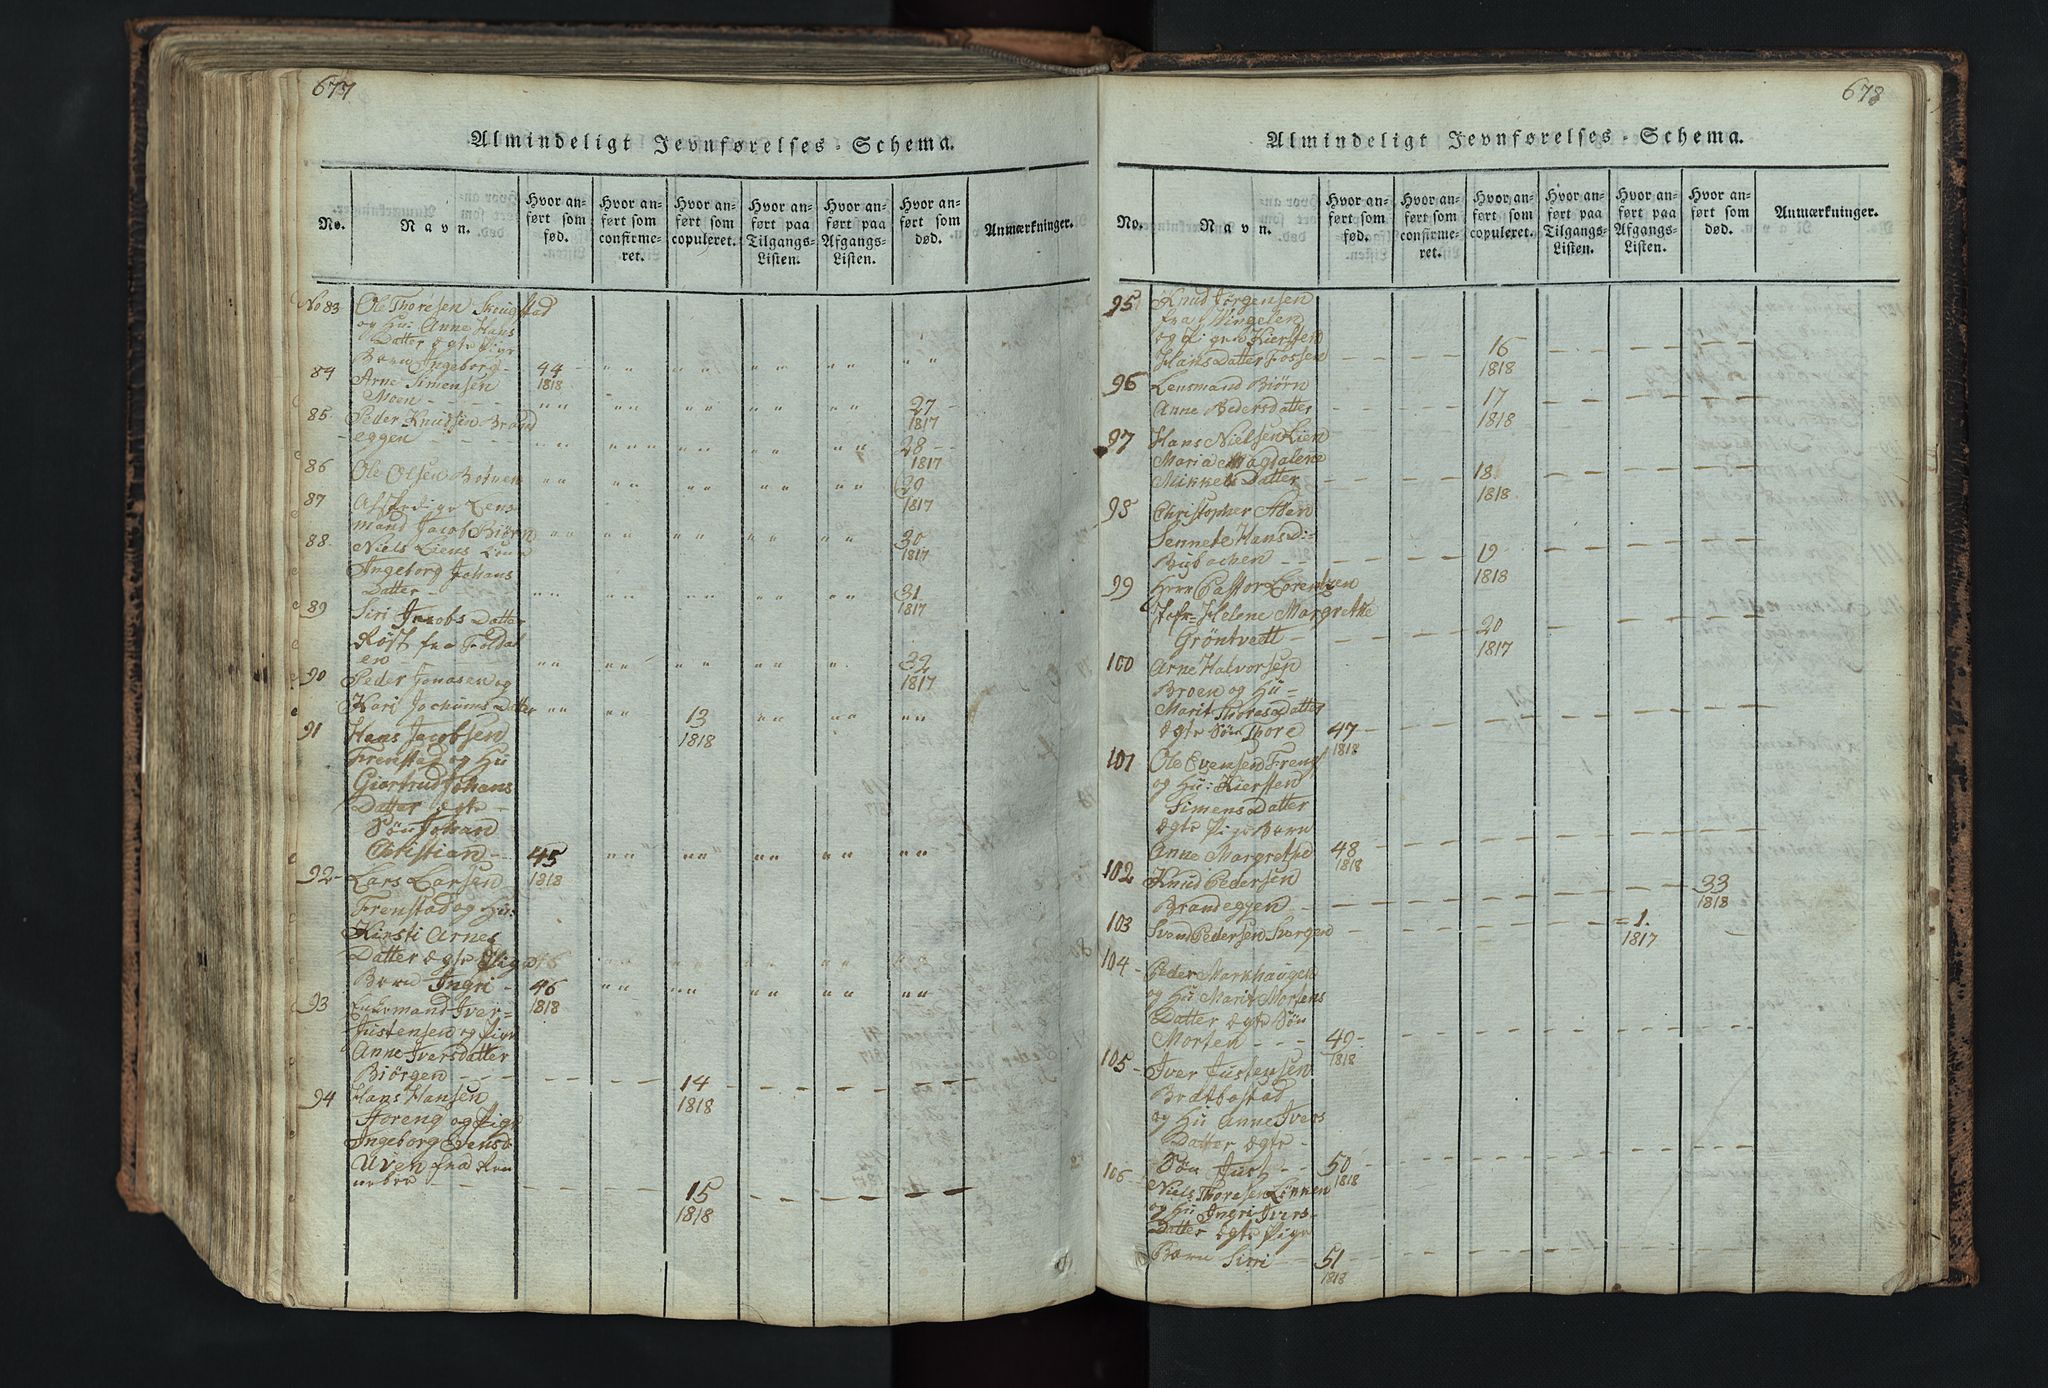 677
Almindeligt Jevnførelses-Schema.
No.
Navn.
Hvor anført som fød.
Hvor anført som confirmeret.
Hvor anført som copuleret.
Hvor anført paa Tilgangs-Listen.
Hvor anført paa Afgangs-Listen.
Hvor anført som død.
Anmærkninger.
No 83 Ole Thoresen
og Hu: Anne Hans
Datter ægte Pige
Barn Ingeborg - 44
1818
84 Arne Simensen
Moen - - - - 27
1817
85 Peder Knudsen Brand
eggen - - - 28
1817
86 Ole Olsen 29
1817
87 Lens
mand Jacob Biørn 30
1817
88 Niels Liens
Ingeborg Johans
Datter - - 31
1817
89 Siri Jacobs Datter
Røst fra Foldal
en - 32
1817
90 Peder Jonasen og
Kari Jochums Datter 13
1818
91 Hans Jacobsen
Frenstad og Hu
Giertrud Johans
Datter ægte -
Søn Johan
Christian - 45
1818
92 - Lars Larsen
Frenstad og Hus
Kirsti Arnes
Datter ægte Pige
Barn Ingri - 46
1818
93 Enkemand Iver
Justensen og Pige
Anne Iversdatter
Biörgen - - - - 14
1818
94 Hans Hansen
Storeng og Pige
Ingeborg Evensd
Uven fra
15
1818
678
Almindeligt Jevnførelses-Schema.
No.
Navn.
Hvor anført som fød.
Hvor anført som confirmeret.
Hvor anført som copuleret.
Hvor anført paa Tilgangs-Listen.
Hvor anført paa Afgangs-Listen.
Hvor anført som død.
Anmærkninger.
95 Knud Jörgensen
fra Vingelen
og Pigen Kiersten
Hans Datter Fossen - 16
1818
96 Lensmand Biörn
Anne Pedersdatter - 17
1818
97 Hans Nielsen Lien
Maria Magdalene
Mikkels Datter 18
1818
98 Christopher
Sennete Hans D:
- 19
1818
99 Herr Pastor Lorentzen
Jofr= Helene Margrethe
Gröntvedt - 20
1817
100 Arne Halvorsen
Broen og Hu=
Marit Thores Datter
ægte Søn Thore 47 -
1818
101 Ole Evensen
og Hu: Kiersten
Simens Datter
ægte Pige Barn
Anne Margrethe 48
1818
102 Knud Pedersen
Brandeggen - 33
1818
103 Svend Pedersen - = 1.
1817
104 - Peder Morkhaugen
og Hu Marit Mortens
Datter ægte Søn
Morten - - - 49 -
1818
105 - Iver Justensen
Brætbostad
og Hu Anne Ivers
Datter ægte -
Søn Just - - 50
1818
106 - Niels Thoresen Lönnen
og Hu Ingri Ivers-
Datter ægte Pige
Barn Siri - - 51 -
1818